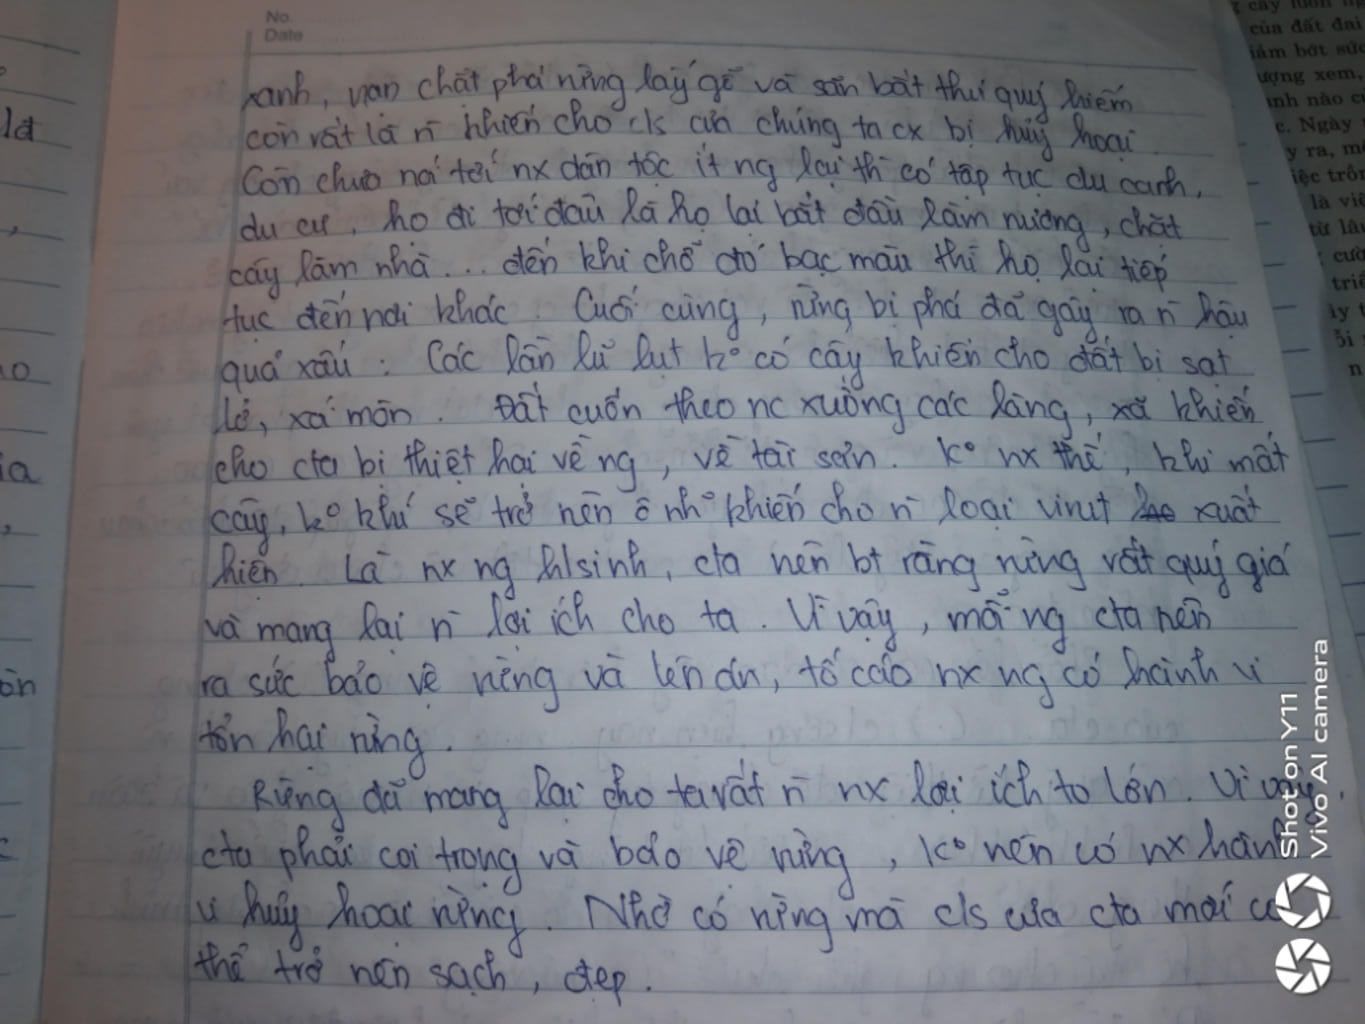 No.
Date
xanh, nạn chặt phá rừng lấy gỗ và săn bắt thú quý hiếm
còn rất là n̄ khiến cho c/s của chúng ta cx bị hủy hoại.
Còn chưa nói tới nx dân tộc ít ng lại thì có tập tục du canh,
du cư, họ đi tới đâu là họ lại bắt đầu làm nương, chặt
cây làm nhà... đến khi chỗ đó bạc màu thì họ lại tiếp
tục đến nơi khác. Cuối cùng, rừng bị phá đã gây ra n̄ hậu
quả xấu: Các lần lũ lụt k° có cây khiến cho đất bị sạt
lở, xói mòn. Đất cuốn theo nc xuống các làng, xã khiến
cho cta bị thiệt hại về ng, về tài sản. K° nx thế, khi mất
cây, k° khí sẽ trở nên ô nh° khiến cho n̄ loại virut xuất
hiện. Là nx ng h/sinh, cta nên bt rằng rừng rất quý giá
và mang lại n̄ lợi ích cho ta. Vì vậy, mỗi ng cta nên
ra sức bảo vệ rừng và lên án, tố cáo nx ng có hành vi
tổn hại rừng.
Rừng đã mang lại cho ta rất n̄ nx lợi ích to lớn. Vì vậy,
cta phải coi trọng và bảo vệ rừng, k° nên có nx hành
vi hủy hoại rừng. Nhờ có rừng mà c/s của cta mới có
thể trở nên sạch, đẹp.
Shot on Y11
Vivo AI camera
của đất đai
giảm bớt sức
ượng xem,
c. Ngày
y ra,
là